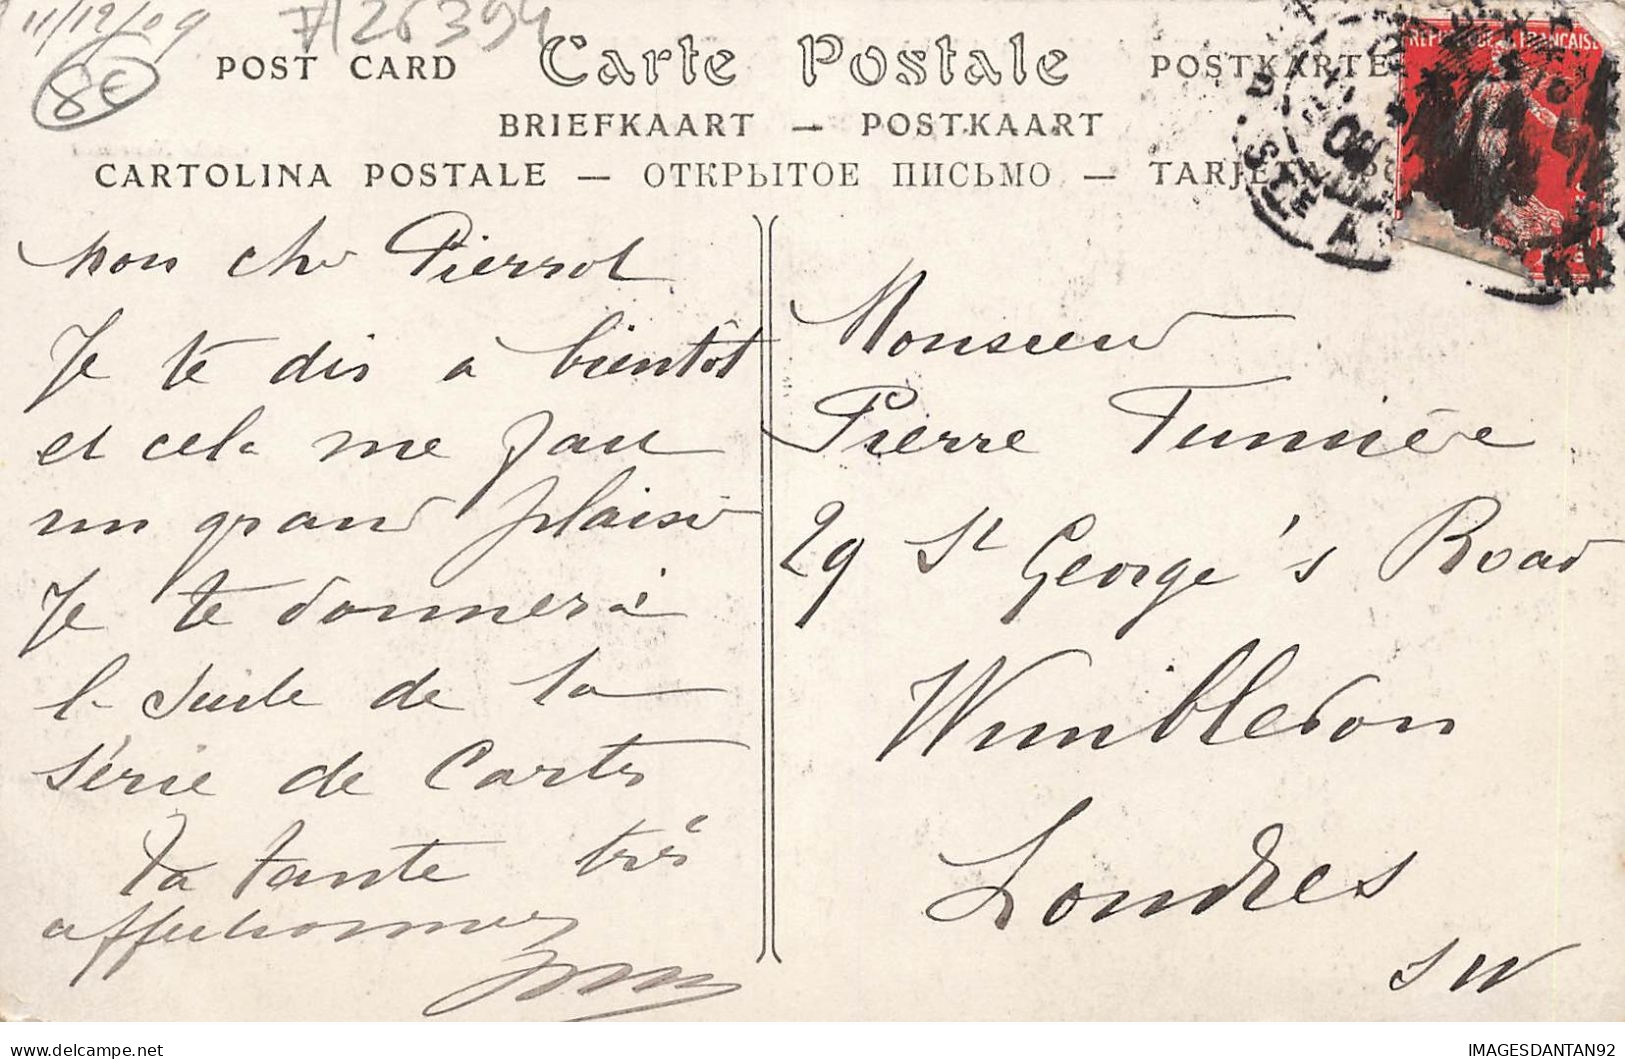 11/12/09
A126394
8€
POST CARD Carte Postale POSTKARTE
BRIEFKAART — POSTKAART
CARTOLINA POSTALE — ОТКРЫТОЕ ПИСЬМО — TARJE
REPUBLIQUE FRANÇAISE
09
Mon cher Pierrot
Je te dis à bientôt
et cela me fait
un grand plaisir
Je te donnerai
la suite de la
série de Cartes
Ta tante très
affectionnée
Monsieur
Pierre
29 St George's Road
Wimbledon
Londres
SW
delcampe.net
IMAGESDANTAN92